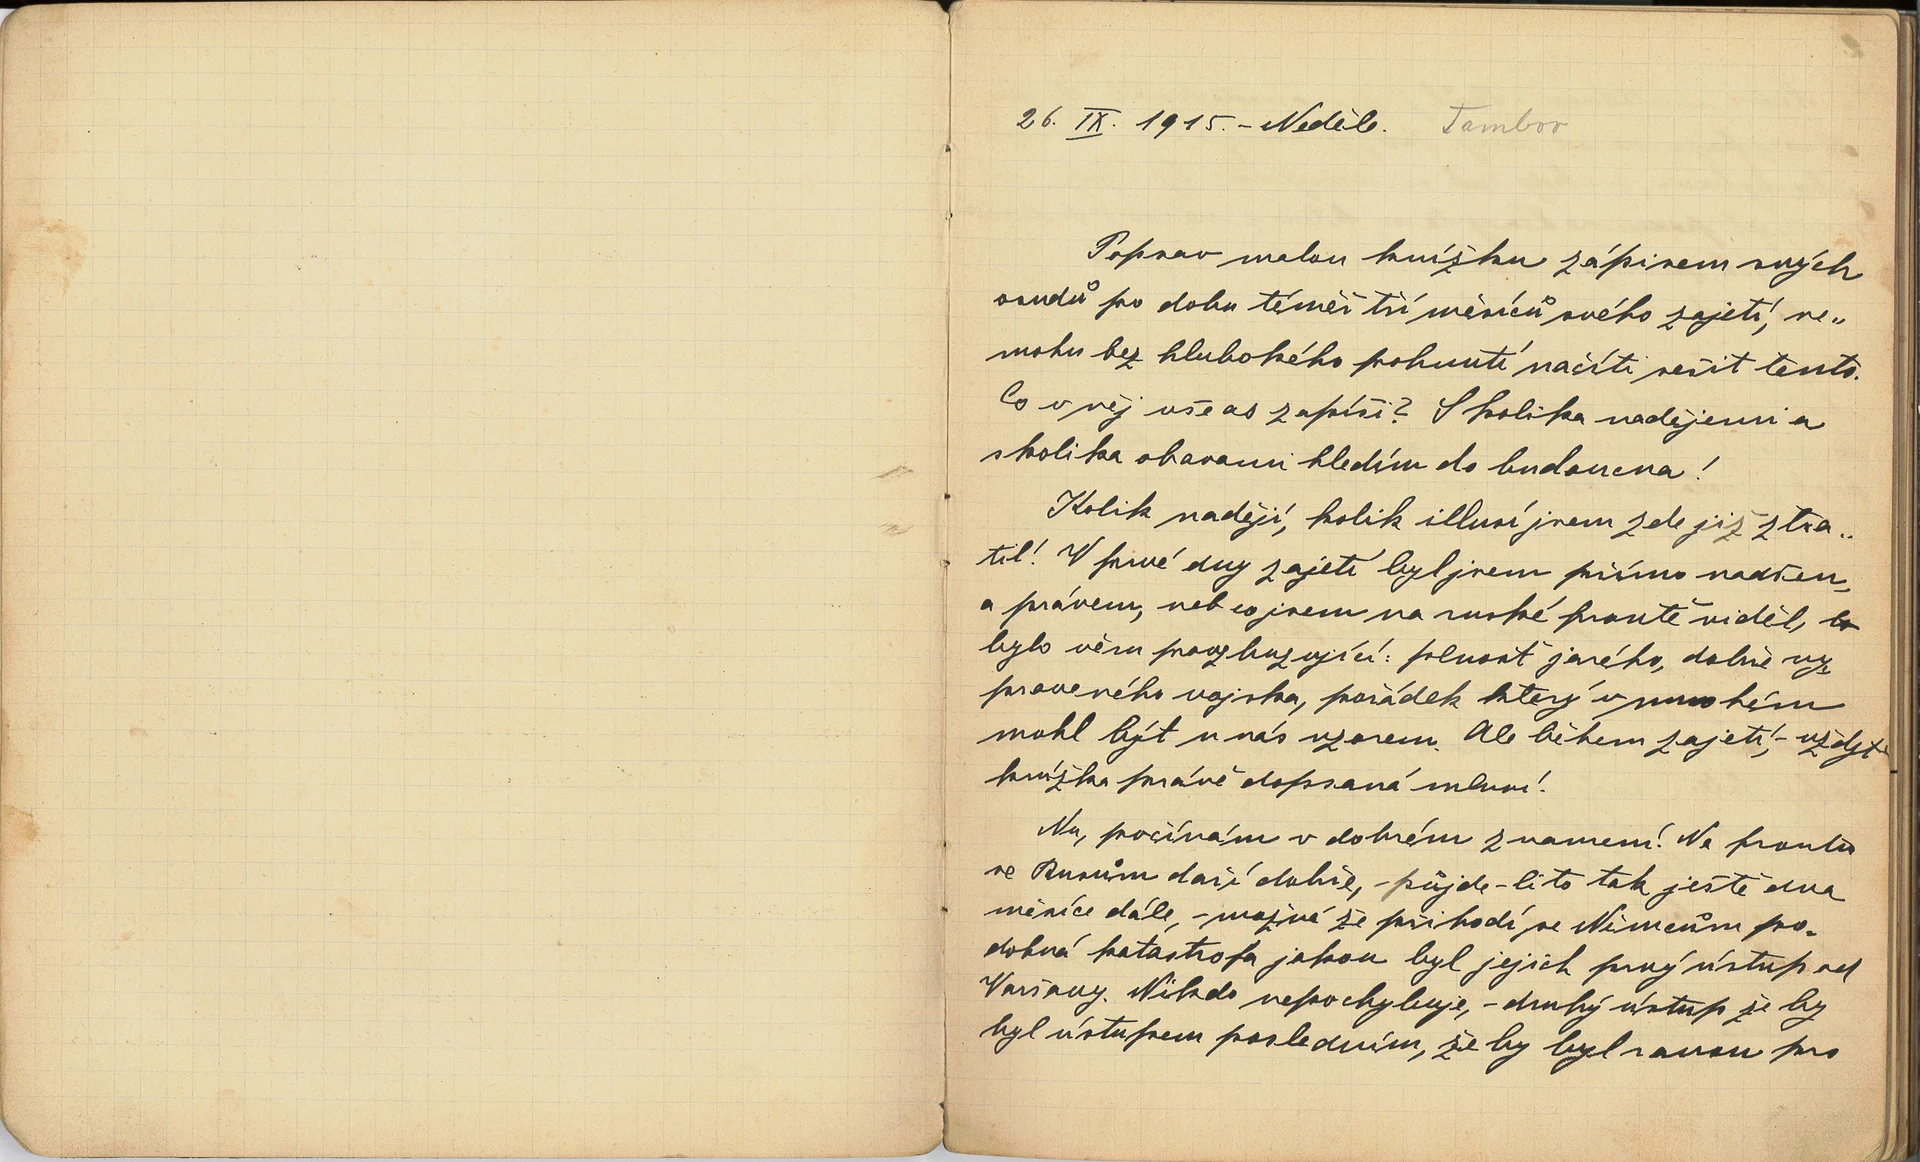 26. IX. 1915. – Neděle. Tambov
Popsav malou knížku zápisem svých
osudů po dobu téměř tří měsíců svého zajetí, ne„
mohu bez hlubokého pohnutí načíti sešit tento.
Co v něj vše as zapíši? S kolika nadějemi a
s kolika obavami hledím do budoucna!
Kolik nadějí, kolik illusí jsem zde již ztra„
til! V prvé dny zajetí byl jsem přímo nadšen,
a právem, neb co jsem na ruské frontě viděl, to
bylo věru povzbuzující: plnost jarého, dobře vy„
praveného vojska, pořádek který v mnohém
mohl být u nás vzorem. Ale během zajetí, – vždyť
knížka právě dopsaná mluví!
Nu, počínám v dobrém znamení! Na frontu
se Rusům daří dobře, – půjde-li to tak ještě dva
měsíce dále, – možná že přihodí se Němcům po„
dobná katastrofa jakou byl jejich prvý ústup od
Varšavy. Nikdo nepochybuje, – druhý ústup že by
byl ústupem posledním, že by byl ranou pro